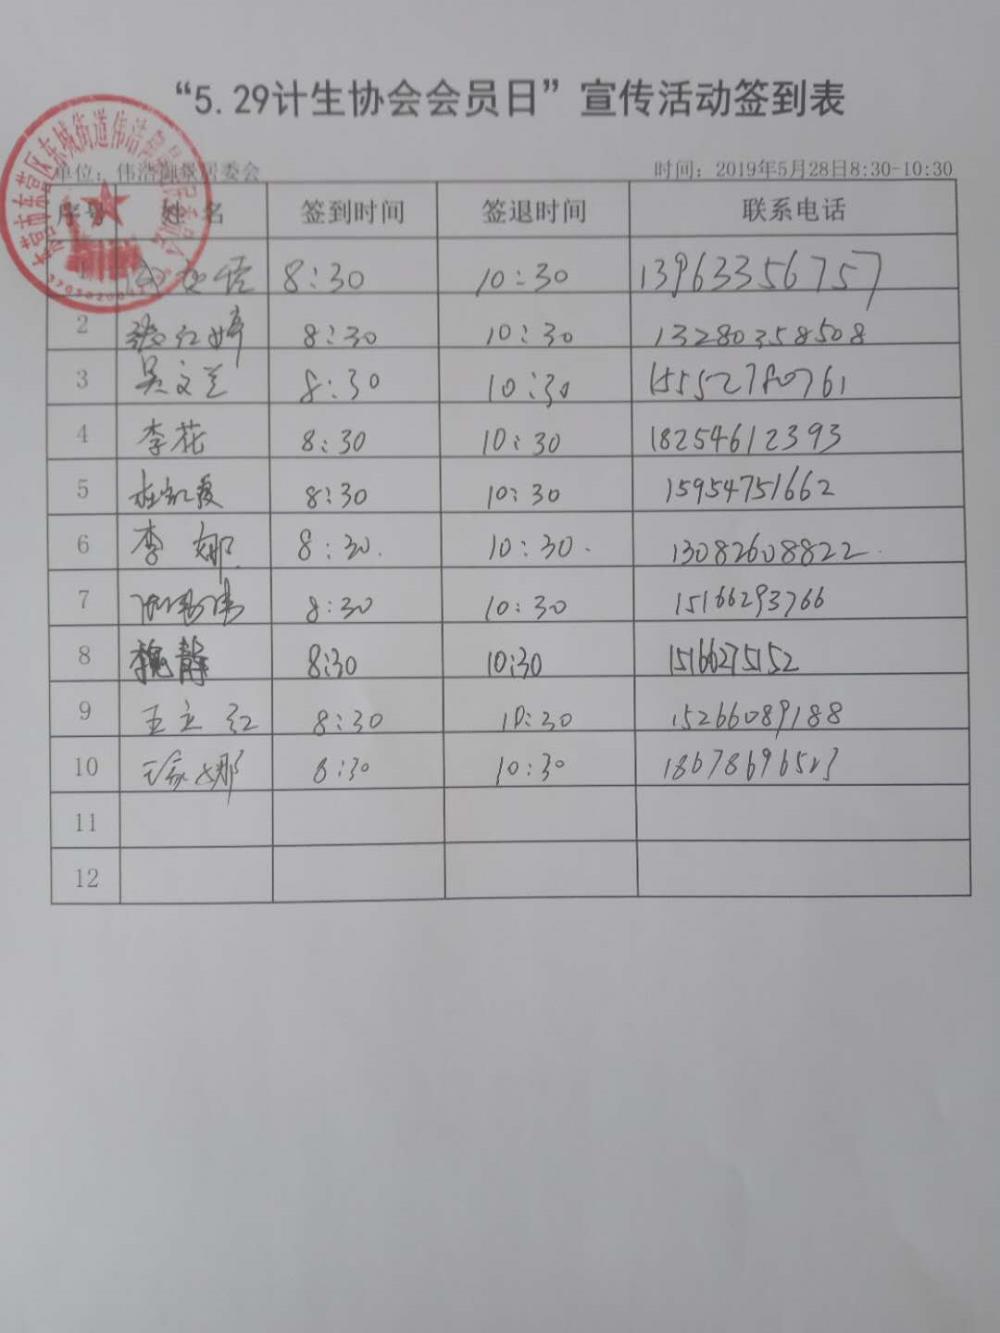 “5.29计生协会会员日”宣传活动签到表
单位：伟浩御景居委会 时间：2019年5月28日8:30-10:30
序号 姓名 签到时间 签退时间 联系电话
1 8:30 10:30 13963356757
2 红婷 8:30 10:30 13280358508
3 吴文兰 8:30 10:30 15552780761
4 李花 8:30 10:30 18254612393
5 8:30 10:30 15954751662
6 李娜 8:30. 10:30. 13082608822.
7 8:30 10:30 15166293766
8 魏静 8:30 10:30 15166275152
9 王立红 8:30 10:30 15266089188
10 8:30 10:30 18678696513
11
12
东营市东营区东城街道伟浩御景居民委员会